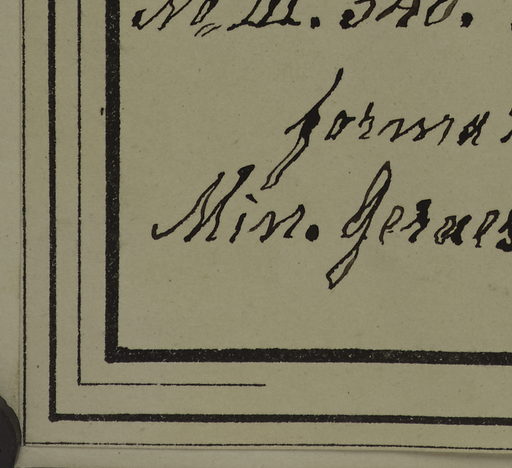 No. III. 340.
forma
Min. Geraes